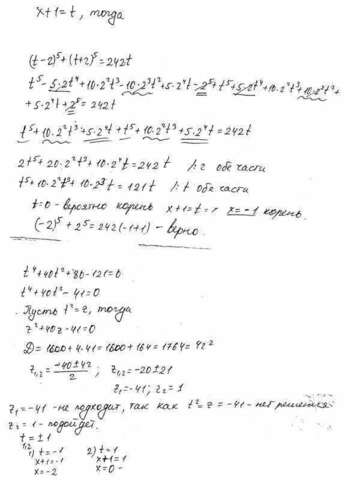 x+1=t, тогда
(t-2)⁵+(t+2)⁵=242t
t⁵-5·2t⁴+10·2²t³-10·2³t²+5·2⁴t-2⁵+t⁵+5·2t⁴+10·2²t³+10·2³t²+
+5·2⁴t+2⁵=242t
t⁵+10·2²t³+5·2⁴t+t⁵+10·2²t³+5·2⁴t=242t
2t⁵+20·2²t³+10·2⁴t=242t /:2 обе части
t⁵+10·2²t³+10·2³t=121t /:t обе части
t=0 - вероятно корень x+1=t=> x=-1 корень.
(-2)⁵+2⁵=242(-1+1) - верно.
t⁴+40t²+80-121=0
t⁴+40t²-41=0
Пусть t²=z, тогда
z²+40z-41=0
D=1600+4·41=1600+164=1764=42²
z₁,₂=-40±42/2; z₁,₂=-20±21
z₁=-41; z₂=1
z₁=-41 -не подходит, так как t²=z=-41 - нет решения.
z₂=1 - подойдет.
t₁,₂=±1
1) t=-1 2) t=1
x+1=-1 x+1=1
x=-2 x=0